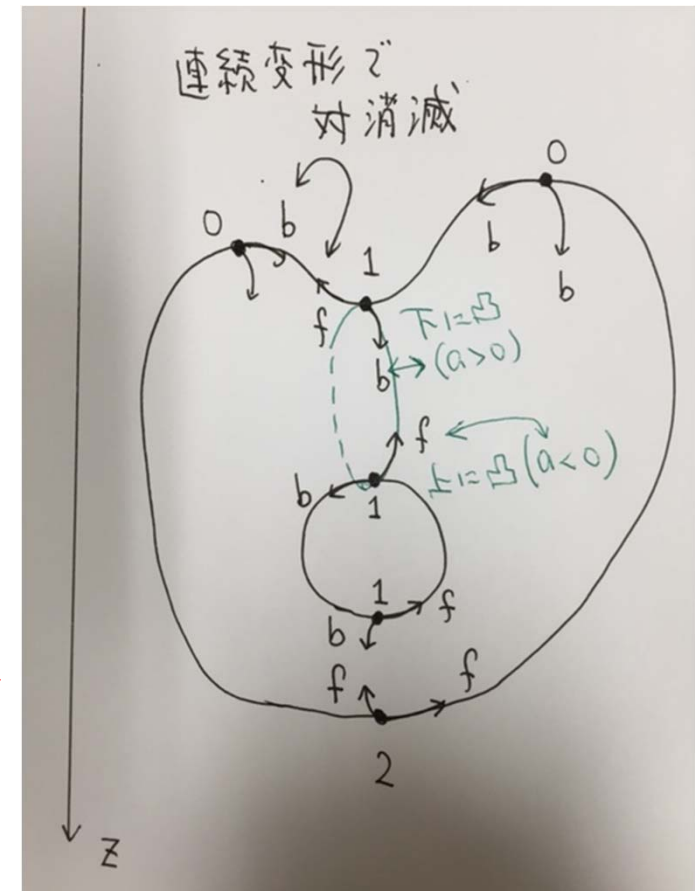 連続変形で
対消滅
0
0
b
1
b
b
f
下に凸
b
(a>0)
f
上に凸(a<0)
b
1
1
f
b
f
f
2
z